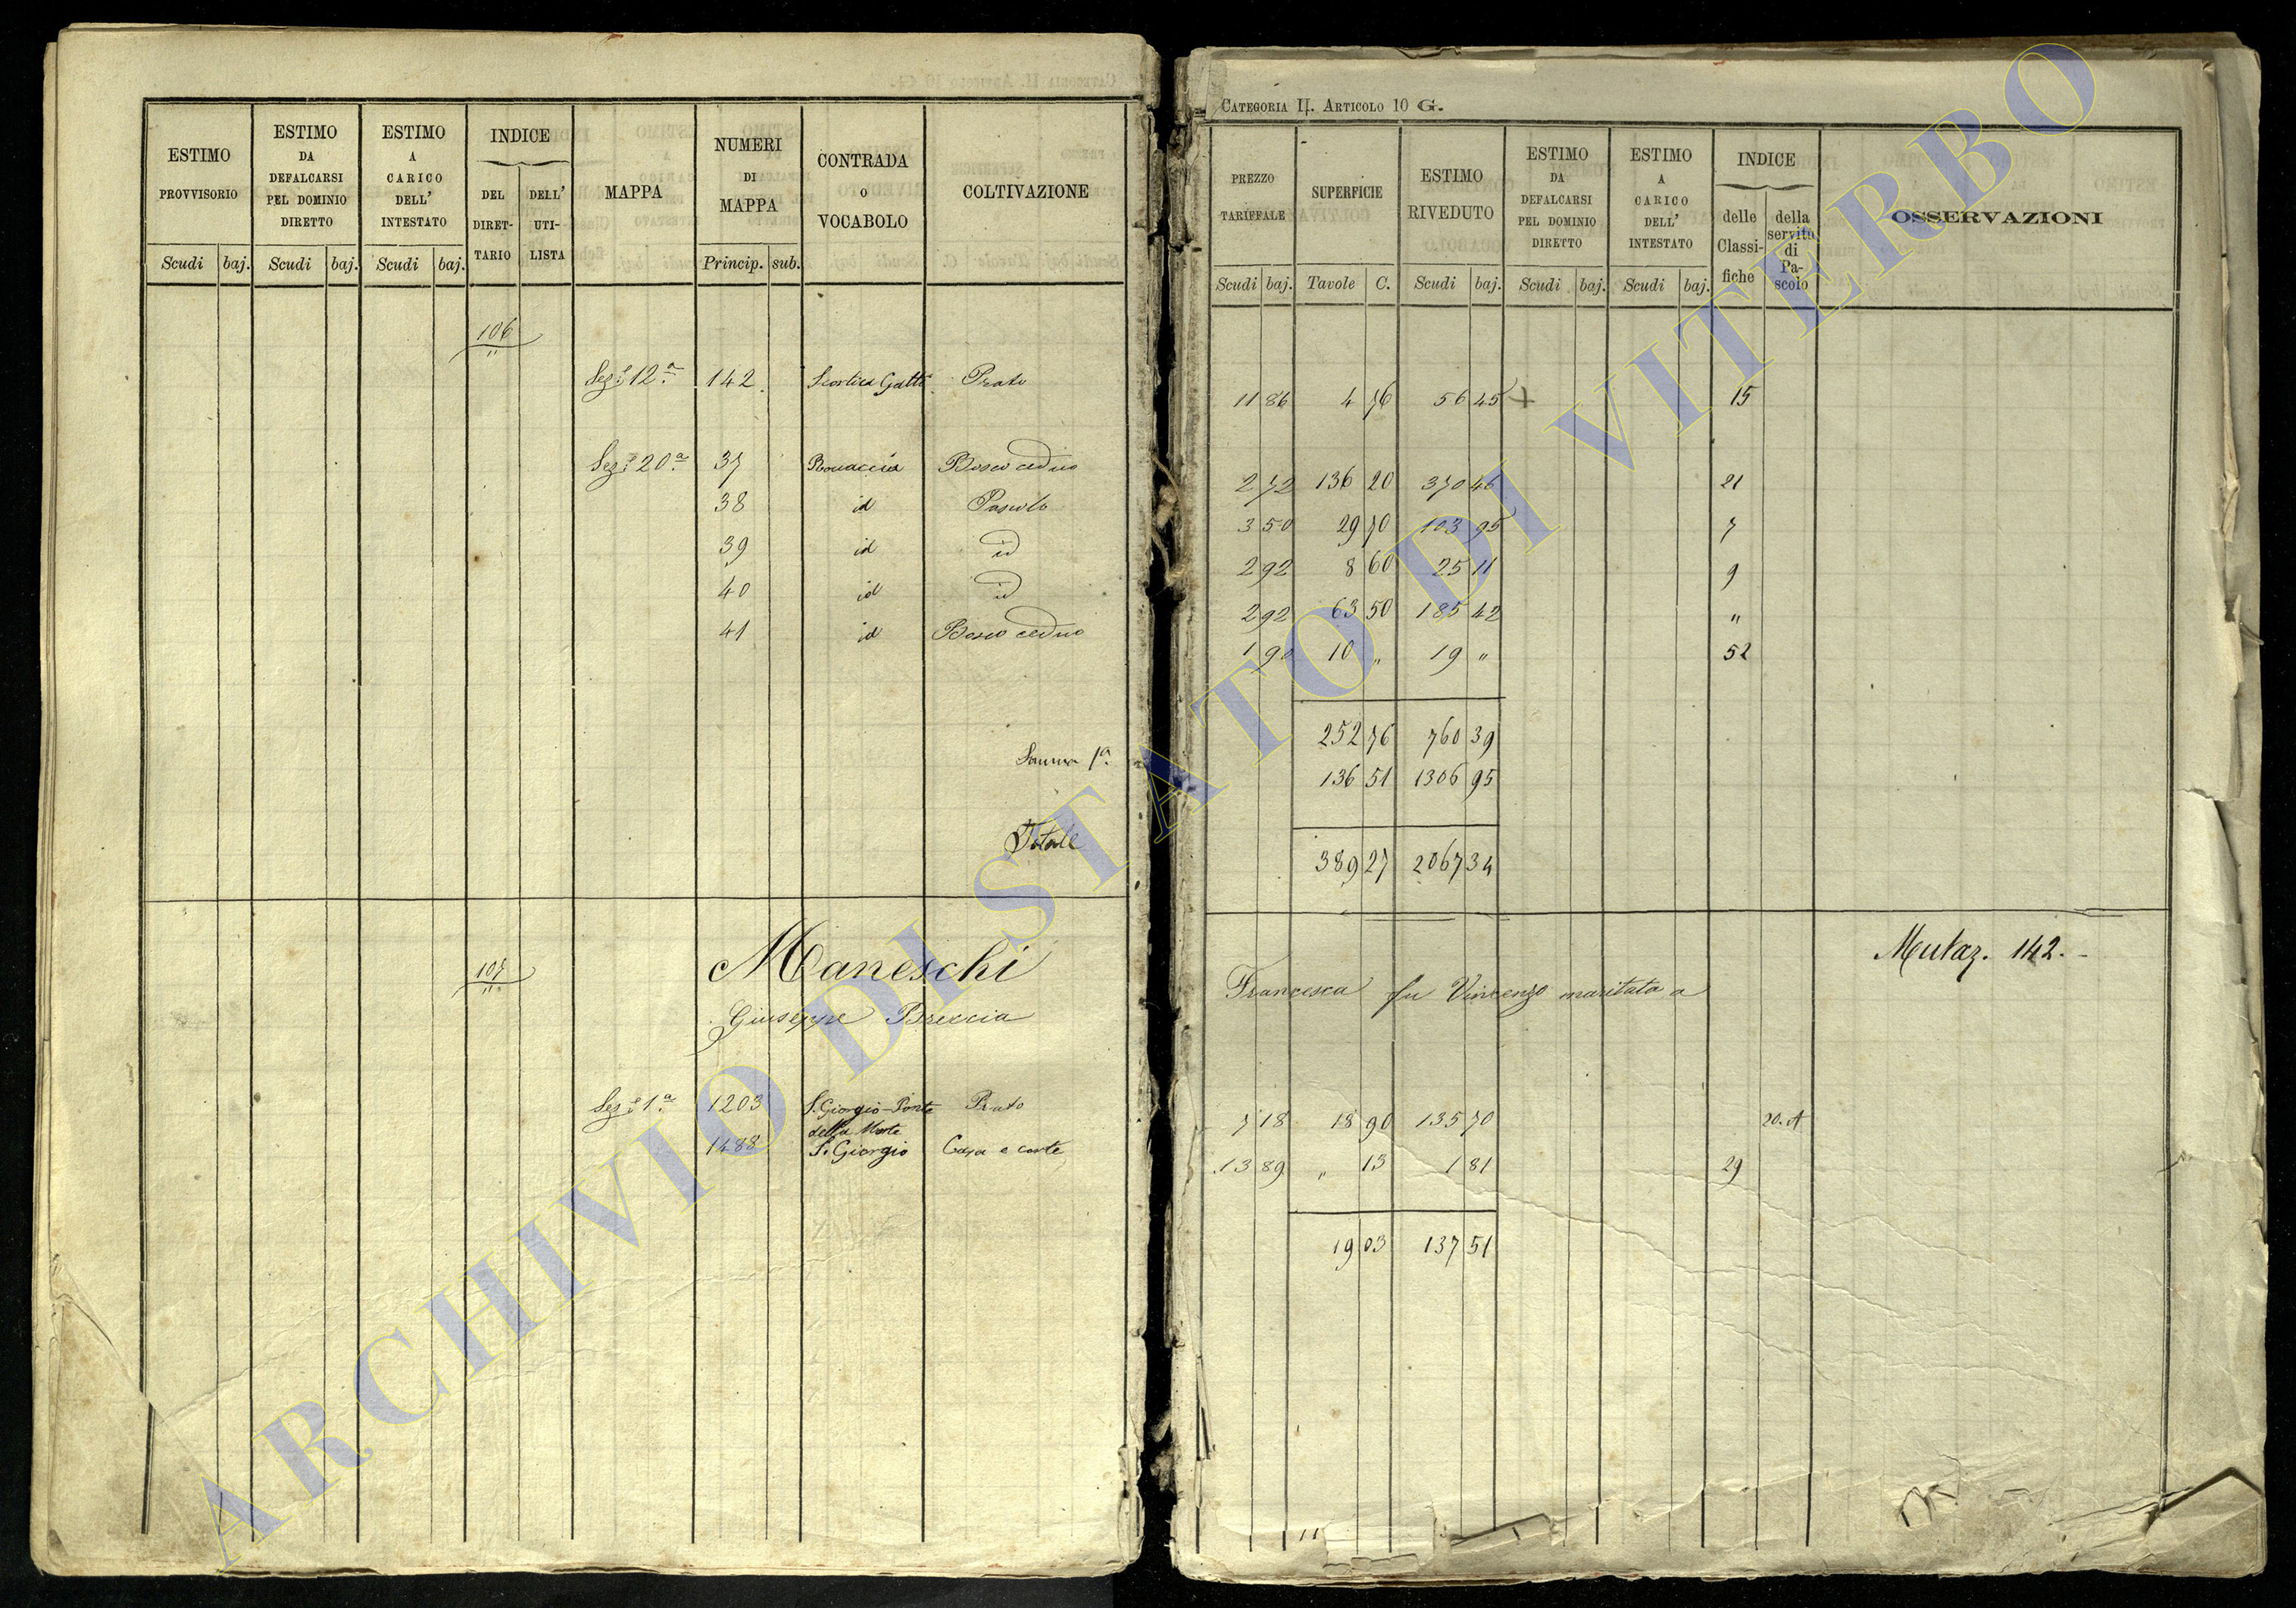 CATEGORIA II. ARTICOLO 10 G.
ESTIMO PROVVISORIO
ESTIMO DA DEFALCARSI PEL DOMINIO DIRETTO
ESTIMO A CARICO DELL' INTESTATO
INDICE
DEL DIRET-TARIO
DELL' UTI-LISTA
MAPPA
NUMERI DI MAPPA
CONTRADA O VOCABOLO
COLTIVAZIONE
Scudi baj. Scudi baj. Scudi baj. Princip. sub.
PREZZO TARIFFALE
SUPERFICIE
ESTIMO RIVEDUTO
ESTIMO DA DEFALCARSI PEL DOMINIO DIRETTO
ESTIMO A CARICO DELL' INTESTATO
INDICE
delle Classi-fiche
della servitù di Pa-scolo
OSSERVAZIONI
Scudi baj. Tavole C. Scudi baj. Scudi baj. Scudi baj.
106
"
Sez.e 12a 142 Scortica Gatti Prato 11 86 4 76 56 45 + 15
Sez.e 20a 37 Bosco ceduo 2 72 136 20 370 46 21
38 id Pascolo 3 50 29 70 103 95 7
39 id id 2 92 8 60 25 11 9
40 id id 2 92 63 50 185 42 "
41 id Bosco ceduo 1 90 10 " 19 " 52
252 76 760 39
Somma 1a. 136 51 1306 95
Totale 389 27 2067 34
Mutaz. 142.-
107
"
Maneschi Francesca fu Vincenzo maritata a
Giuseppe Breccia
Sez.e 1a 1203 S. Giorgio-Ponte Prato 7 18 18 90 135 70 20.A
della Morte
1488 S. Giorgio Casa e corte 13 89 " 13 1 81 29
19 03 137 51
ARCHIVIO DI STATO DI VITERBO